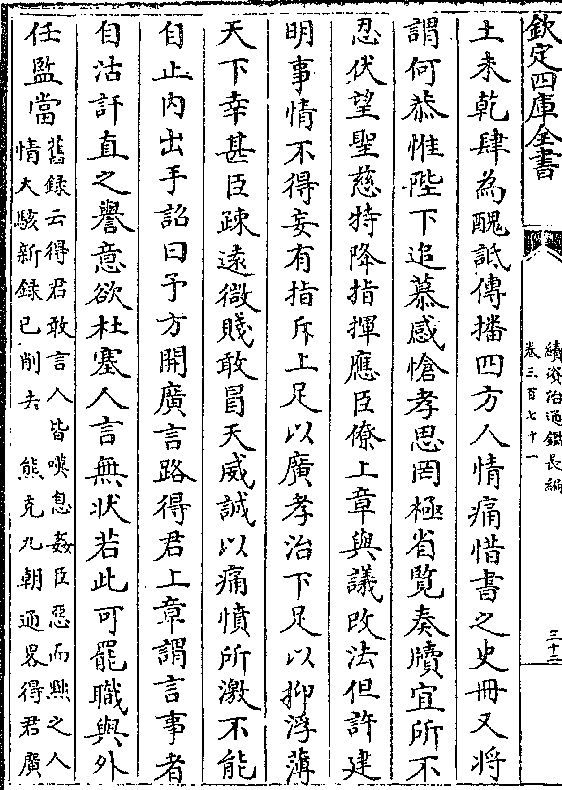 欽定四庫全書
續資治通鑑長編
卷三百七十一
三十二
土未乾肆為醜詆傳播四方人情痛惜書之史冊又將
謂何恭惟陛下追慕感愴孝思罔極省覽奏牘宜所不
忍伏望聖慈特降指揮應臣僚上章與議改法但許建
明事情不得妄有指斥上足以廣孝治下足以抑浮薄
天下幸甚臣疎遠微賤敢冒天威誠以痛憤所激不能
自止内出手詔曰予方開廣言路得君上章謂言事者
自沽訐直之譽意欲杜塞人言無狀若此可罷職與外
任監當
舊録云得君敢言人皆嘆息姦臣惡而黜之人
情大駭新録已削去　熊克九朝通畧得君廣